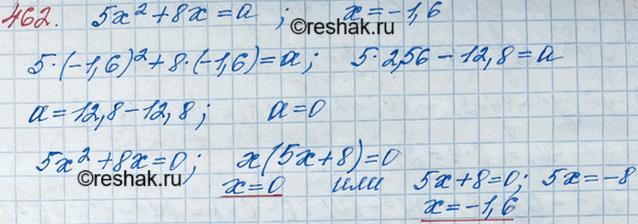 462. 5x² + 8x = a ; x = -1,6
5·(-1,6)² + 8·(-1,6) = a; 5·2,56 - 12,8 = a
a = 12,8 - 12,8; a = 0
5x² + 8x = 0; x(5x + 8) = 0
x = 0 или 5x + 8 = 0; 5x = -8
x = -1,6
©reshak.ru
©reshak.ru
©reshak.ru
©reshak.ru